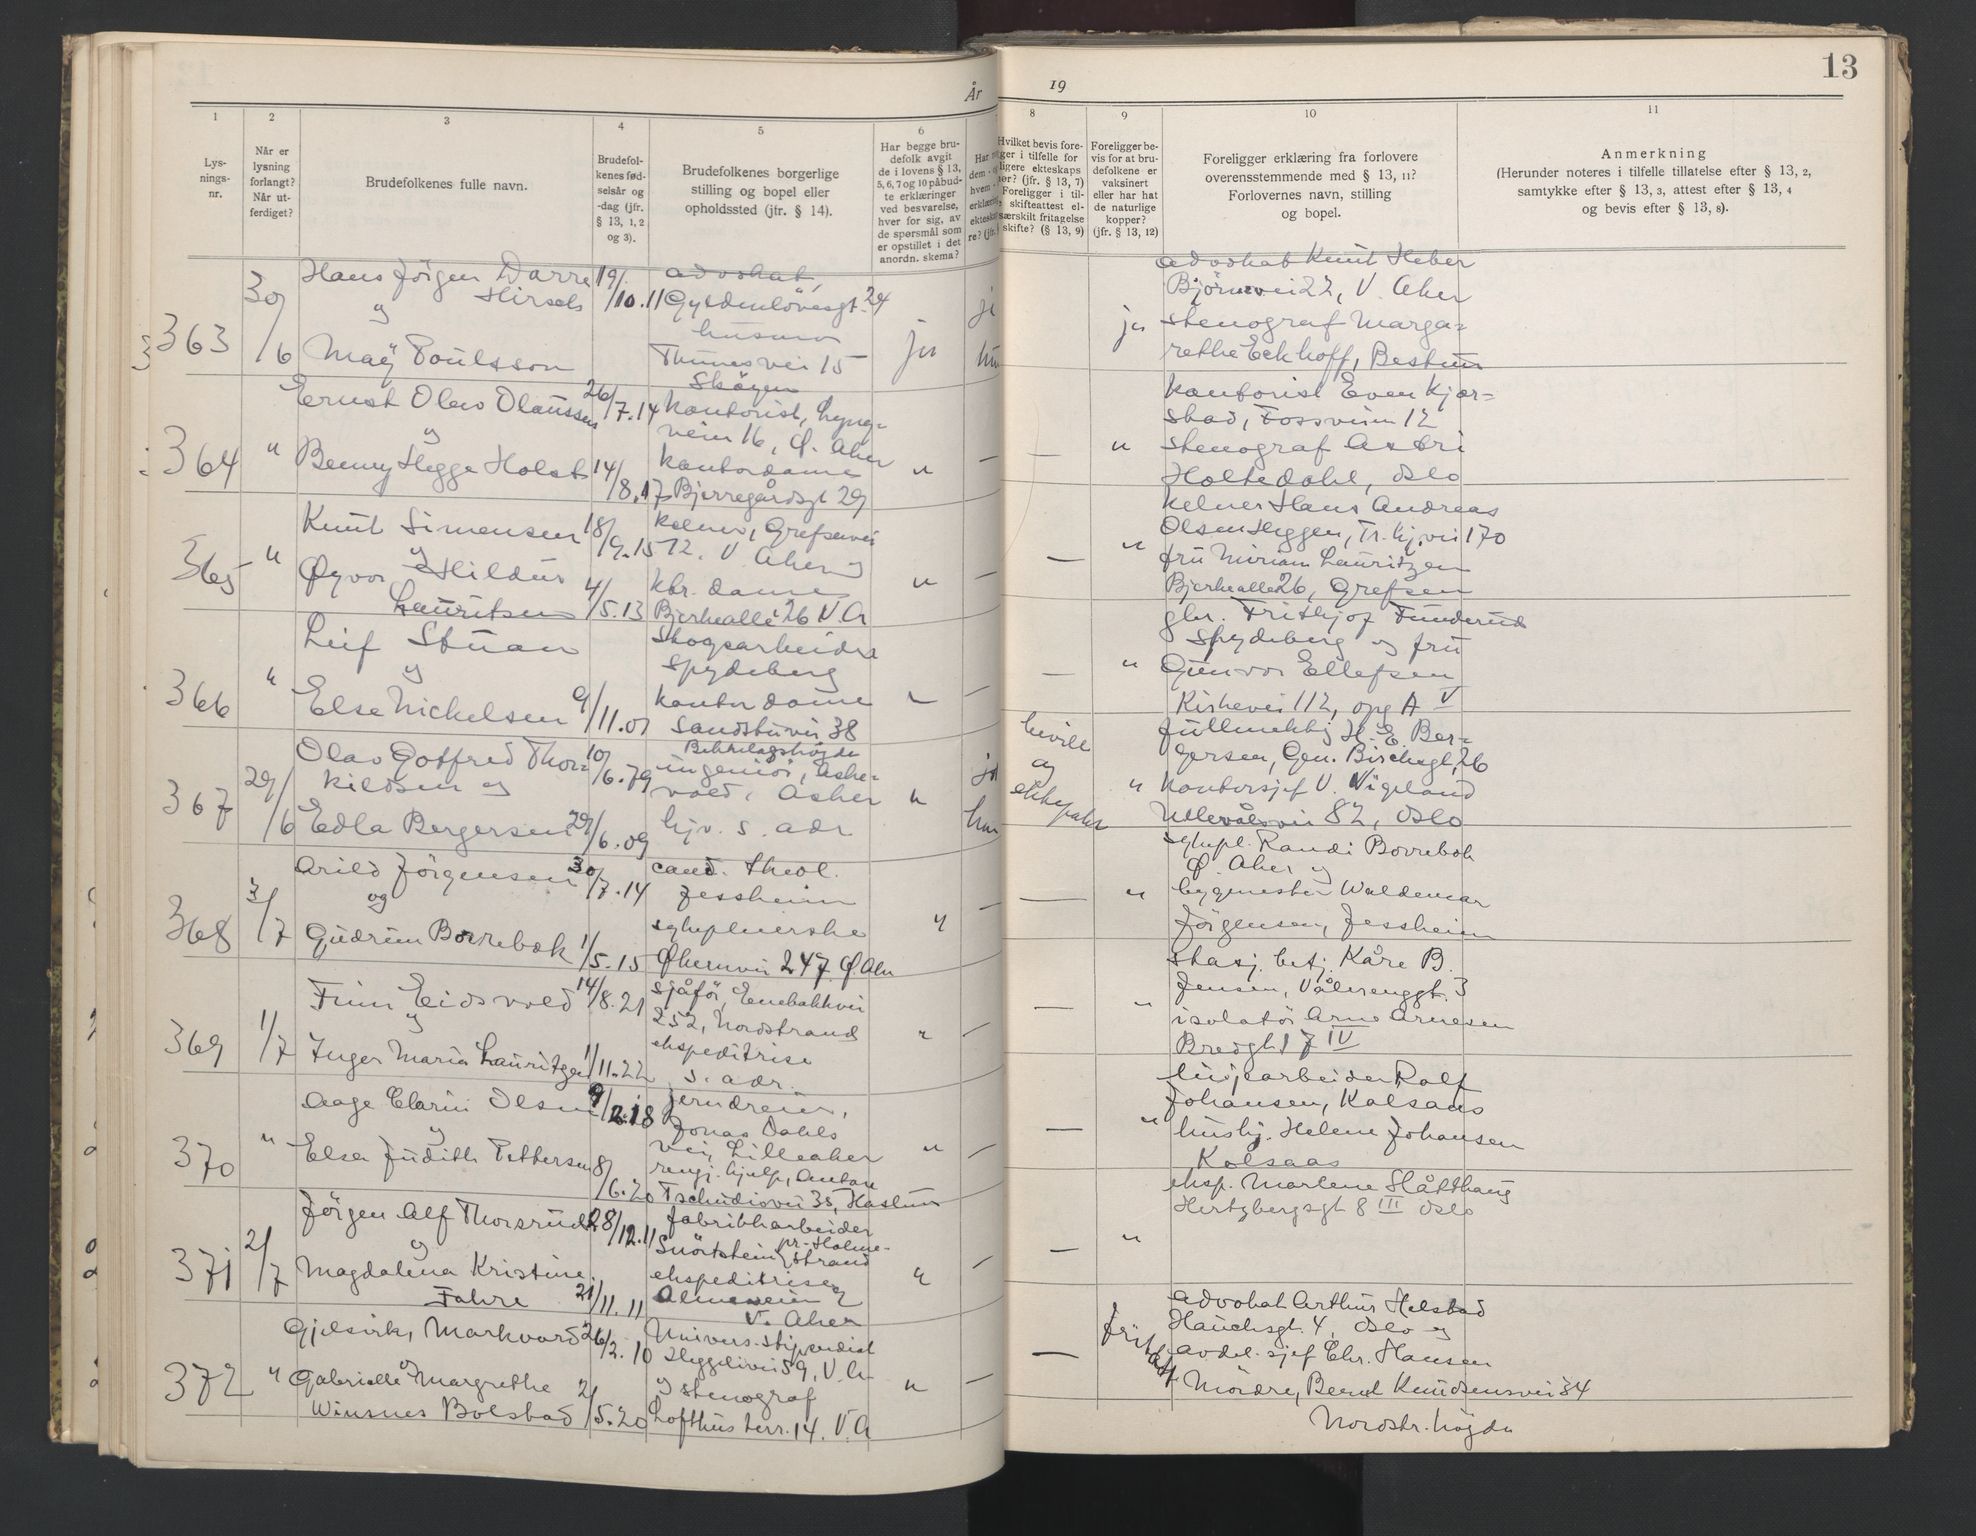 År
19
13
1
2
3
4
5
6
8
9
10
11
Lys-
nings-
nr.
Når er
lysning
forlangt?
Når ut-
ferdiget?
Brudefolkenes fulle navn.
Brudefol-
kenes fød-
selsår og
-dag (jfr.
§ 13, 1, 2
og 3).
Brudefolkenes borgerlige
stilling og bopel eller
opholdssted (jfr. § 14).
Har begge bru-
defolk avgit
de i lovens § 13,
5, 6, 7 og 10 påbud-
te erklæringer
ved besvarelse,
hver for sig, av
de spørsmål som
er opstillet i det
anordn. skema?
Hvilket bevis fore-
ger i tilfelle for
ligere ekteskaps
ør? (jfr. § 13, 7)
Foreligger i til-
skifteattest el-
særskilt fritagelse
skifte? (§ 13, 9)
Foreligger be-
vis for at bru-
defolkene er
vaksinert
eller har hat
de naturlige
kopper?
(jfr. § 13, 12)
Foreligger erklæring fra forlovere
overensstemmende med § 13, 11?
Forlovernes navn, stilling
og bopel.
Anmerkning
(Herunder noteres i tilfelle tillatelse efter § 13, 2,
samtykke efter § 13, 3, attest efter § 13, 4
og bevis efter § 13, 8).
363
30/6
Hans Jörgen Darre
Hirsch
og
May Poulsson
19/10.11
advokat,
Gyldenlövesgt. 24
Thunes vei 15
Skøyen
ja
ja
advokat Knut Heber
Björnvei 22, V. Aker
stenograf Marga-
rethe Eckhoff, Bestum
364
"
Ernst Olav Olaussen
og
Benny Hegge Holst
26/7.14
14/8.17
kontorist, Lyng-
veien 16, Ø. Aker
kontordame
Bjerregårdsgt 29
"
—
—
"
kontorist Even Kjør-
stad, Fossveien 12
stenograf Astri
Holtedahl, Oslo
365
"
Knut Simensen
og
Øyvor Hildur
Lauritsen
18/9.15
4/5.13
kelner, Grefsenvei
72. V. Aker og
ktr. dame
Bjerkealle 26 V.A
"
—
—
"
kelner Hans Andreas
Olsen Heggen, Tr.hj.vei 170
fru Miriam Lauritzen
Bjerkealle 26, Grefsen
366
"
Leif Stuan
og
Else Nichelsen
9/11.01
Skogsarbeider
Spydeberg
kontordame
Sandstuvei 38
Bekkelagshøgda
"
—
—
"
gbr. Frithjof Funderud
Spydeberg og fru
Gunvor Ellefsen
Kirkevei 112, opg A V
367
29/6
Olav Gotfred Thor-
kildsen og
Edla Bergersen
10/6.79
29/6.09
ingeniör, Aske-
vold, Asker
hjv. s. adr
"
bevill
og
ektepakt
"
fullmektig H. E. Ber-
gersen, Gen. Birchsgt, 26
kontorsjef V. Vigeland
Ullevålsvei 82, Oslo
368
3/7
Arild Jörgensen
og
Gudrun Borrebæk
30/7.14
1/5.15
cand. theol.
Jessheim
sykepleierske
Økernvei 247 Ø. Aker
"
—
—
"
sykepl. Randi Borrebæk
Ø. Aker og
bygmester Waldemar
Jörgensen, Jessheim
369
1/7
Finn Eidsvold
og
Inger Maria Lauritzen
14/8.21
1/11.22
sjåför, Enebakkvei
252, Nordstrand
ekspeditrise
s. adr.
"
—
—
"
stasj. betj. Kåre B.
Jensen, Vålerenggt. 3
isolatör Arne Arnesen
Bredgt 7 IV
370
"
og
Elsa Judith Pettersen
9/2.18
8/6.20
Jonas Dahls
vei, Lilleaker
rengj. hjelp, Anton
Tschudisvei 35, Haslum
"
—
—
"
linjearbeider Rolf
Johansen, Kolsaas
husbj. Helene Johansen
Kolsaas
371
2/7
Jörgen Alf Thorsrud
og
Magdalena Kristine
Fahre
28/12.11
21/11.11
fabrikkarbeider
pr. Holme-
strand
ekspeditrise
Almeveien 2
V. Aker
"
—
—
"
eksp. Marlene Slåtthaug
Hertzbergsgt 8 III Oslo
372
"
Markvard
og
Gabrielle Margrethe
Winsnes Bolstad
26/2.10
2/5.20
Univers. stipendiat
Hyggelivei 59, V. A
og stenograf
Lofthus terr. 14. V. A
"
—
—
advokat Arthur Helstad
Hauchsgt. 4, Oslo og
avdel. sjef Chr. Hansen
Möidre, Bernt Knudsensvei 34
Nordstr. högda